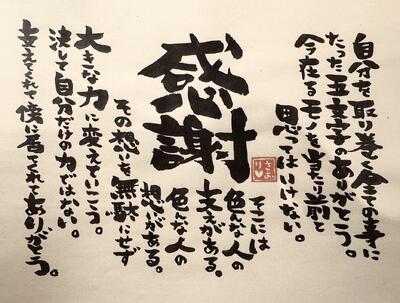 自分を取り巻く全ての事に
たった五文字のありがとう。
今在るモノを当たり前と
思ってはいけない。
感謝
さおり
そこには
色んな人の
支えがある。
色んな人の
想いがある。
その想いを無駄にせず
大きな力に変えていこう。
決して自分だけの力ではない。
支えてくれて傍に居てくれてありがとう。